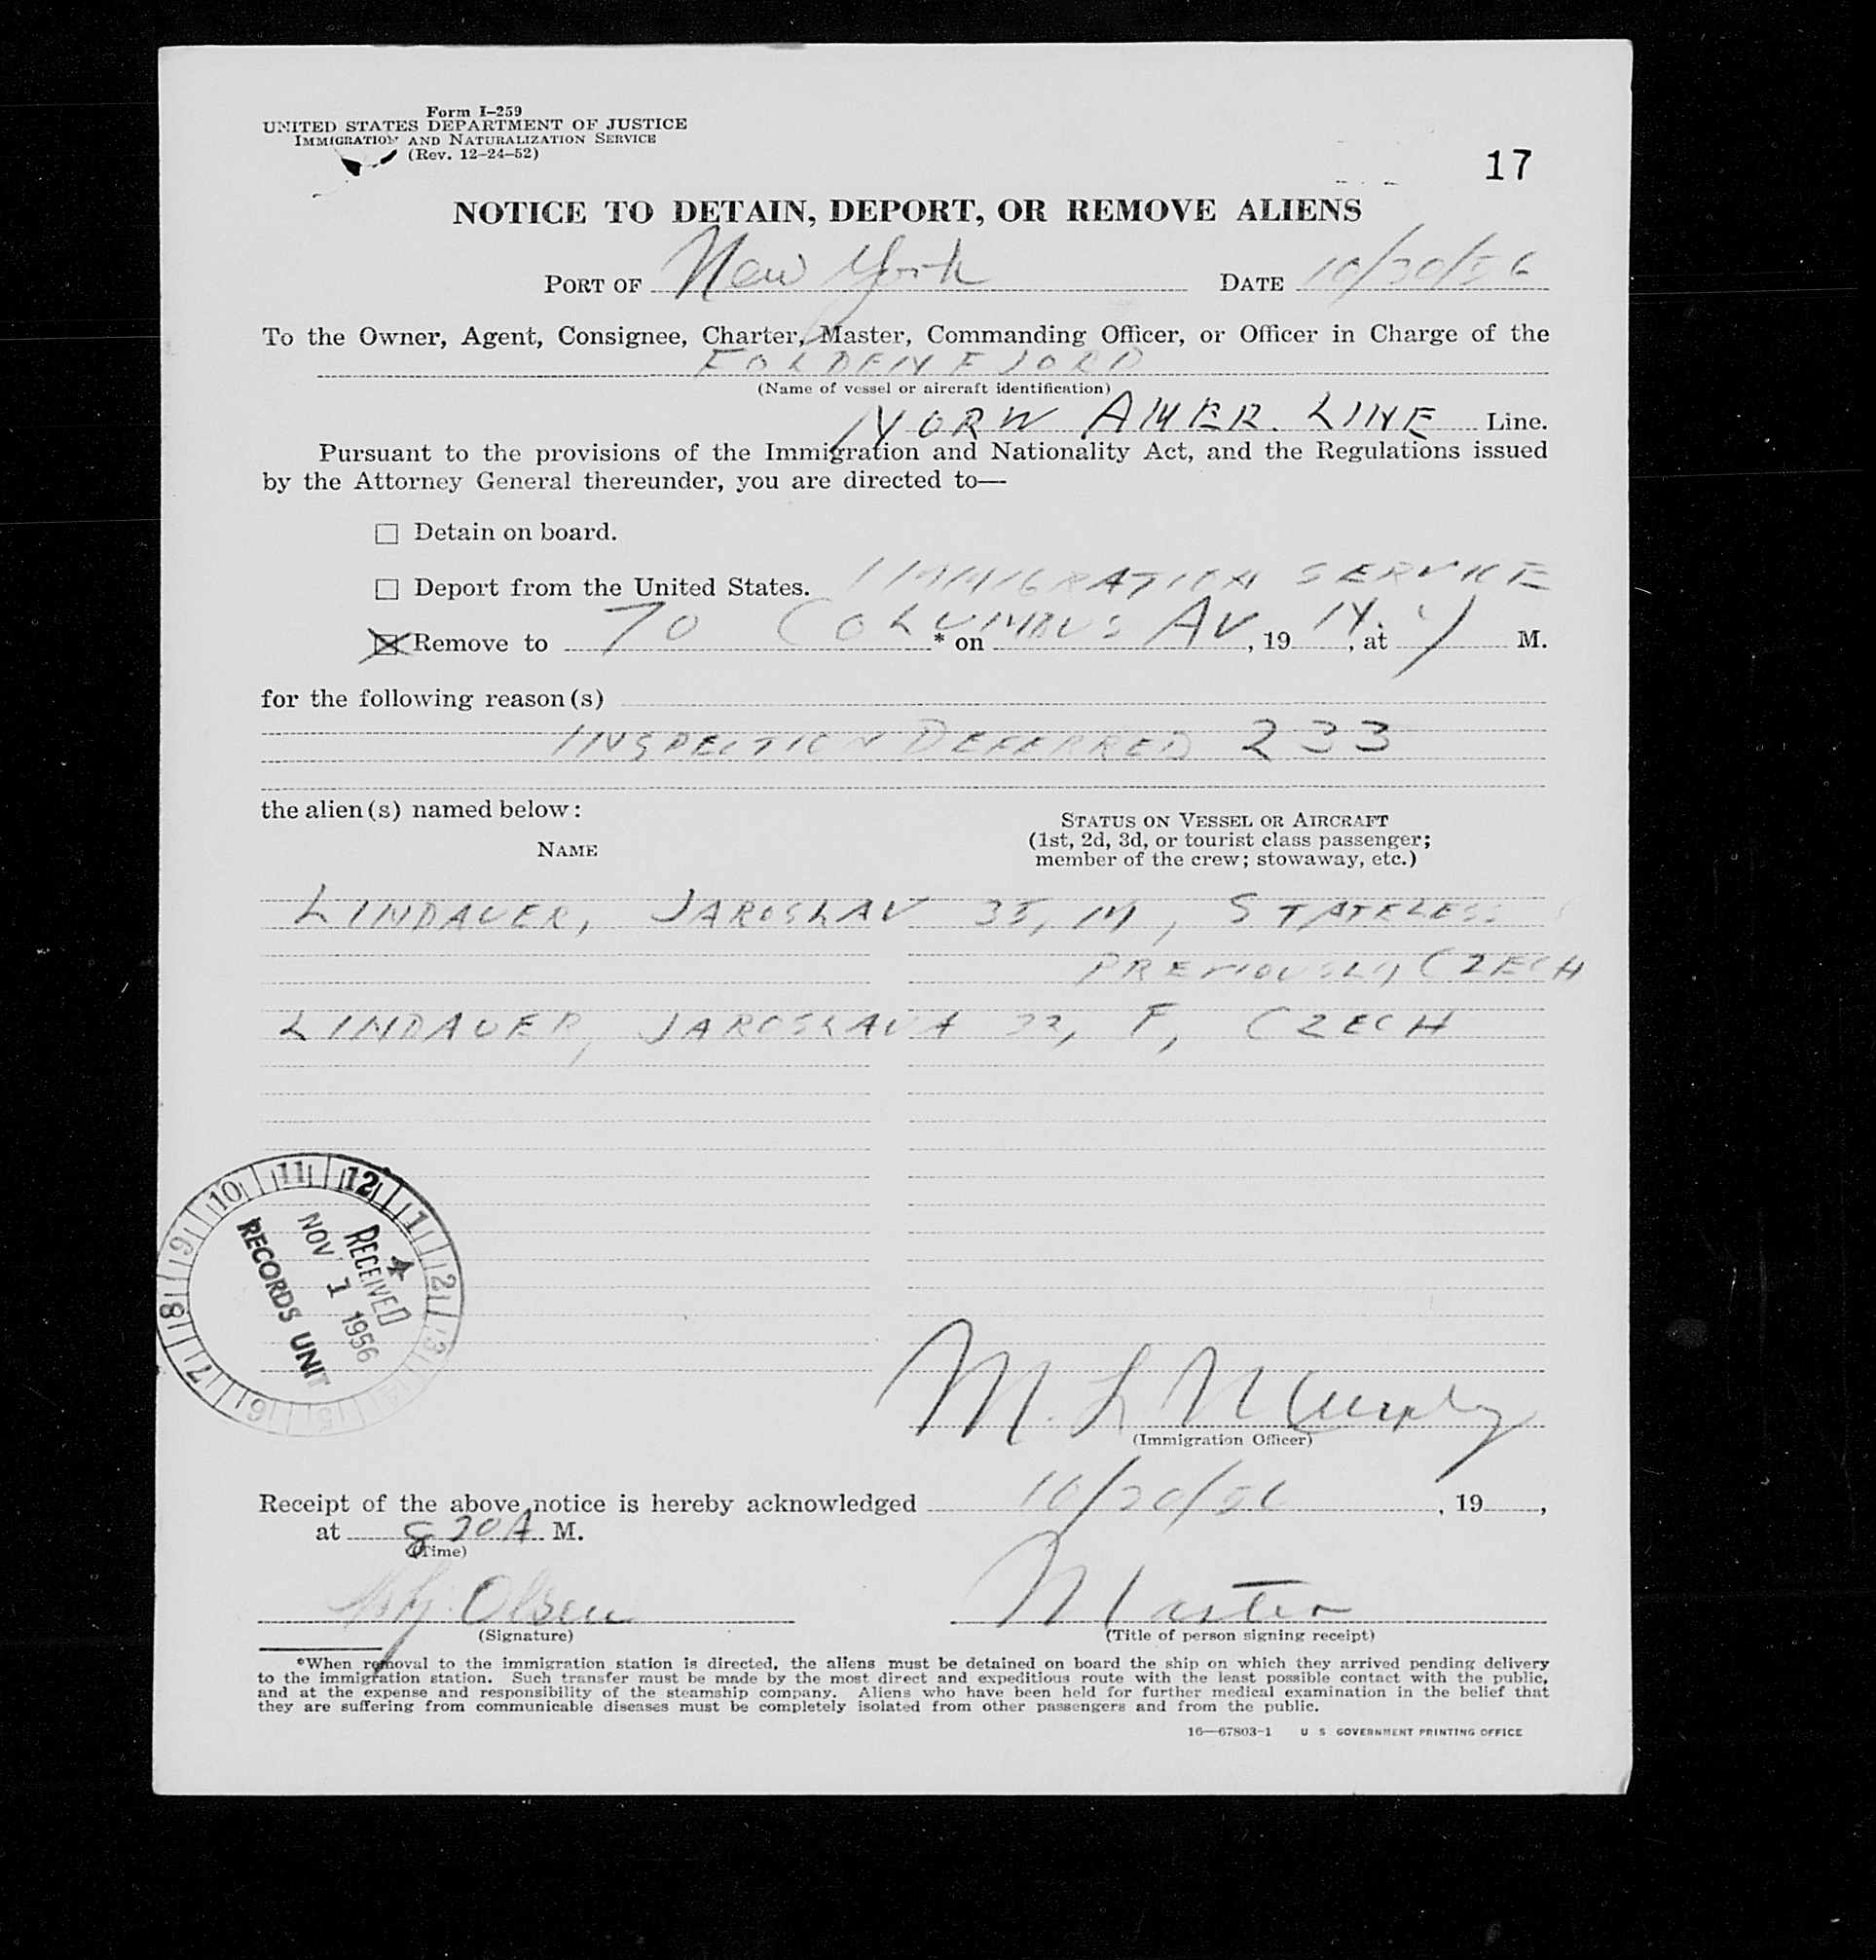 Form I–259
UNITED STATES DEPARTMENT OF JUSTICE
IMMIGRATION AND NATURALIZATION SERVICE
(Rev. 12–24–52)
17
NOTICE TO DETAIN, DEPORT, OR REMOVE ALIENS
PORT OF New York DATE
To the Owner, Agent, Consignee, Charter, Master, Commanding Officer, or Officer in Charge of the
(Name of vessel or aircraft identification)
NORW AMER. LINE Line.
Pursuant to the provisions of the Immigration and Nationality Act, and the Regulations issued
by the Attorney General thereunder, you are directed to—
☐ Detain on board.
☐ Deport from the United States. IMMIGRATION SERVICE
☒ Remove to 70 COLUMBUS AV * on , 19 N.Y , at M.
for the following reason(s)
INSPECTION DEFERRED 233
the alien(s) named below:
NAME
STATUS ON VESSEL OR AIRCRAFT
(1st, 2d, 3d, or tourist class passenger;
member of the crew; stowaway, etc.)
LINDAUER, JAROSLAV 35, M, STATELESS
PREVIOUSLY CZECH
LINDAUER, JAROSLAVA F, CZECH
10 11 12 1 2 3 4 5 6 7 8 9
RECEIVED
NOV 1 1956
RECORDS UNIT
M. L. Murphy
(Immigration Officer)
Receipt of the above notice is hereby acknowledged , 19 ,
at M.
(Time)
Olsen Master
(Signature) (Title of person signing receipt)
*When removal to the immigration station is directed, the aliens must be detained on board the ship on which they arrived pending delivery
to the immigration station. Such transfer must be made by the most direct and expeditious route with the least possible contact with the public,
and at the expense and responsibility of the steamship company. Aliens who have been held for further medical examination in the belief that
they are suffering from communicable diseases must be completely isolated from other passengers and from the public.
16—67803-1 U S GOVERNMENT PRINTING OFFICE